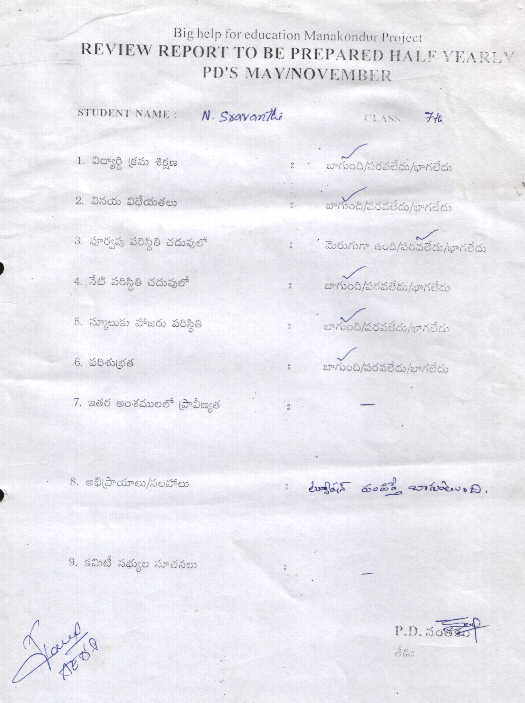 Big help for education Manakondur Project
REVIEW REPORT TO BE PREPARED HALF YEARLY
PD'S MAY/NOVEMBER
STUDENT NAME : N. Sravanthi CLASS 7th
1. విద్యార్థి క్రమ శిక్షణ : బాగుంది/పరవలేదు/బాగలేదు
2. వినయ విధేయతలు : బాగుంది/పరవలేదు/బాగలేదు
3. పూర్వపు పరిస్థితి చదువులో : మెరుగుగా ఉంది/పరవలేదు/బాగలేదు
4. నేటి పరిస్థితి చదువులో : బాగుంది/పరవలేదు/బాగలేదు
5. స్కూలుకు హాజరు పరిస్థితి : బాగుంది/పరవలేదు/బాగలేదు
6. పరిశుభ్రత : బాగుంది/పరవలేదు/బాగలేదు
7. ఇతర అంశములలో ప్రావీణ్యత : —
8. అభిప్రాయాలు/సలహాలు : ట్యూషన్ పంపిస్తే బాగుంటుంది.
9. కమిటీ సభ్యుల సూచనలు : —
P.D. సంతకం